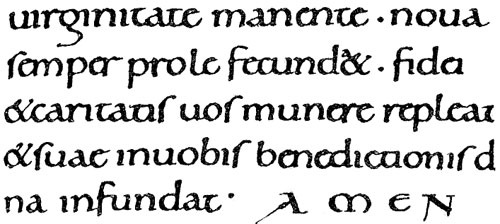 uirginitate manente · noua
semper prole fecund& · fidei
&caritatis uos munere repleat
&suae inuobis benedictionis d
na infundat · A M E N